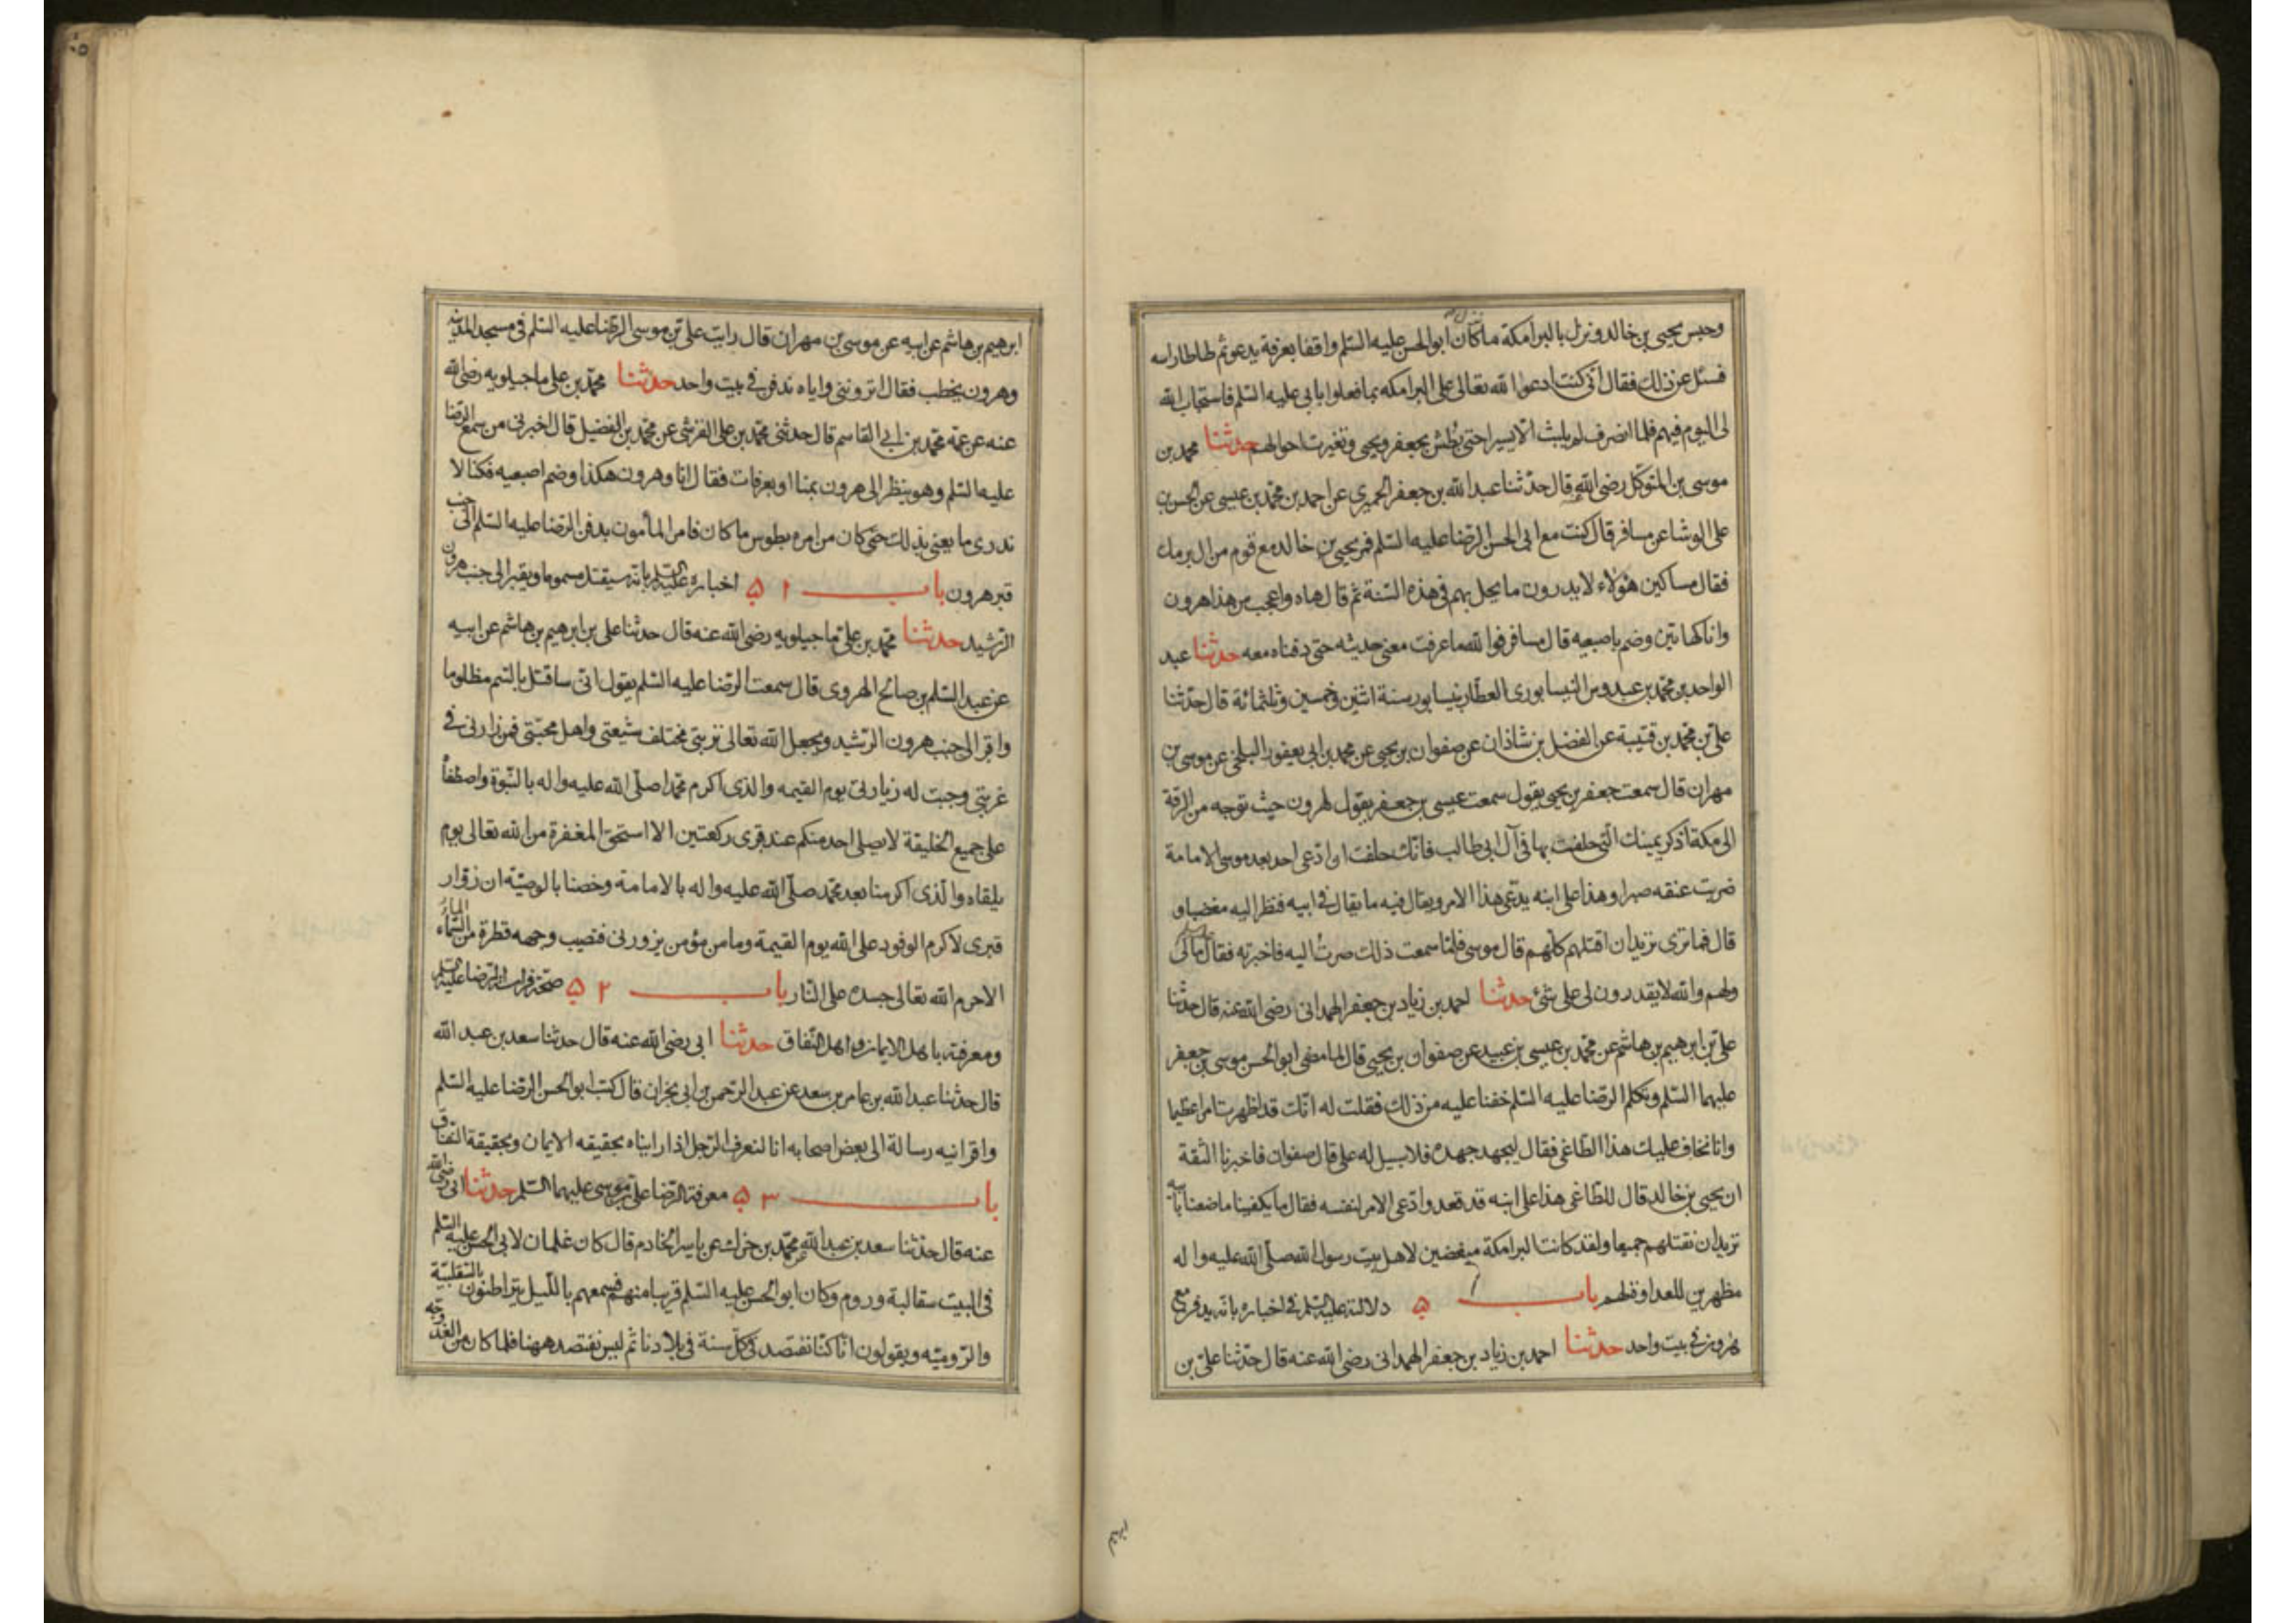 وحبس يحيى بن خالد ونزل بالبرامكة ما كان ابو الحسن عليه السّلم واقفا بعرفة يدعو ثم طاطا راسه
فسئل عن ذلك فقال انّى كنت ادعوا الله تعالى على البرامكه بما فعلوا بابى عليه السّلم فاستجاب الله
لى اليوم فيهم فلما انصرف لم يلبث الّا يسيرا حتى بُطش بجعفر ويحيى وتغيرت احوالهم حدثنا محمد بن
موسى بن المتوكل رضى الله قال حدّثنا عبد الله بن جعفر الحميرى عن احمد بن محمّد بن عيسى عن الحسن بن
على الوشا عن مسافر قال كنت مع ابى الحسن الرضا عليه السّلم فمر يحيى بن خالد مع قوم من ال برمك
فقال مساكين هؤلاء لا يدرون ما يحل بهم فى هذه السّنة ثم قال هاه واعجب من هذا هرون
وانا كهاتين وضم باصبعيه قال مسافر فوالله ما عرفت معنى حديثه حتى دفناه معه حدثنا عبد
الواحد بن محمّد بن عبدوس النيسابورى العطّار بنيسابور سنة اثنين وخمسين وثلثمائة قال حدّثنا
علىّ بن محمّد بن قتيبة عن الفضل بن شاذان عن صفوان بن يحيى عن محمد بن ابى يعفور البلخى عن موسى بن
مهران قال سمعت جعفر بن يحيى يقول سمعت عيسى بن جعفر يقول لهرون حيث توجه من الرقة
الى مكة اذكر يمينك الّتى حلفت بها فى آل ابى طالب فانّك حلفت ان ادّعى احد بعد موسى الامامة
ضربت عنقه صبرا وهذا على ابنه يدّعى هذا الامر ويقال فيه ما يقال فى ابيه فنظر اليه مغضبا و
قال فما ترى تريد ان اقتلهم كلّهم قال موسى فلمّا سمعت ذلك صرت اليه فاخبرته فقال ما لى
ولهم والله لا يقدرون لى على شئ حدثنا احمد بن زياد بن جعفر الهمدانى رضى الله عنه قال حدّثنا
علىّ بن ابرهيم بن هاشم عن محمّد بن عيسى بن عبيد عن صفوان بن يحيى قال لما مضى ابو الحسن موسى بن جعفر
عليهما السّلم وتكلم الرضا عليه السّلم خفنا عليه من ذلك فقلت له انّك قد اظهرت امرا عظيما
وانا نخاف عليك هذا الطّاغى فقال ليجهد جهده فلا سبيل له على قال صفوان فاخبرنا الثقة
ان يحيى بن خالد قال للطّاغى هذا على ابنه قد قعد وادّعى الامر لنفسه فقال ما يكفينا ما صنعنا بابيه
تريد ان نقتلهم جميعا ولقد كانت البرامكة مبغضين لاهل بيت رسول الله صلّى الله عليه واله
مظهرين للعداوة لهم باب ۵ دلالته عليه السّلم فى اخباره بانّه يدفن مع
هرون فى بيت واحد حدثنا احمد بن زياد بن جعفر الهمدانى رضى الله عنه قال حدّثنا علىّ بن
ابرهيم بن هاشم عن ابيه عن موسى بن مهران قال رايت علىّ بن موسى الرّضا عليه السّلم فى مسجد المدينه
وهرون يخطب فقال اترونى واياه ندفن فى بيت واحد حدثنا محمّد بن على ماجيلويه رضى الله
عنه عن عمّه محمّد بن ابى القاسم قال حدثنى محمّد بن على القرشى عن محمّد بن الفضيل قال اخبرنى من سمع الرّضا
عليه السّلم وهو ينظر الى هرون بمنا او بعرفات فقال انا وهرون هكذا وضم اصبعيه فكنا لا
ندرى ما يعنى بذلك حتى كان من امره بطوس ما كان فامر المأمون بدفن الرضا عليه السّلم الى جنب
قبر هرون باب ۵۱ اخباره عليه السّلم بانّه سيقتل مسموما ويقبر الى جنب هرون
الرّشيد حدثنا محمّد بن علىّ ماجيلويه رضى الله عنه قال حدثنا على بن ابرهيم بن هاشم عن ابيه
عن عبد السّلم بن صالح الهروى قال سمعت الرّضا عليه السّلم يقول انّى ساقتل بالسّم مظلوما
واقبر الى جنب هرون الرّشيد ويجعل الله تعالى تربتى مختلف شيعتى واهل محبّتى فمن زارنى فى
غربتى وجبت له زيارتى يوم القيمه والذى اكرم محمّدا صلّى الله عليه واله بالنّبوة واصطفاه
على جميع الخليقة لا يصلى احد منكم عند قبرى ركعتين الا استحق المغفرة من الله تعالى يوم
يلقاه والّذى اكرمنا بعد محمّد صلّى الله عليه واله بالامامة وخصنا بالوصيّة ان زوّار
قبرى لاكرم الوفود على الله يوم القيمة وما من مؤمن يزورنى فتصيب وجهه قطرة من السّماء الماء
الا حرم الله تعالى جسده على النّار باب ۵۲ صحّة فراسة الرّضا عليه السّلم
ومعرفته باهل الايمان واهل النّفاق حدثنا ابى رضى الله عنه قال حدثنا سعد بن عبد الله
قال حدثنا عبد الله بن عامر بن سعد عن عبد الرّحمن بن ابى نجران قال كتب ابو الحسن الرّضا عليه السّلم
واقرانيه رسالة الى بعض اصحابه انا لنعرف الرّجل اذا رايناه بحقيقه الايمان وبحقيقة النّفاق
باب ۵۳ معرفة الرّضا علىّ بن موسى عليهما السّلم حدثنا ابى رضى الله
عنه قال حدّثنا سعد بن عبد الله عن محمّد بن جزك عن ياسر الخادم قال كان غلمان لابى الحسن عليه السّلم
فى البيت سقالبة وروم وكان ابو الحسن عليه السّلم قريبا منهم فسمعهم باللّيل يتراطنون بالسّقلبيّة
والرّوميّه ويقولون انّا كنّا نفتصد فى كلّ سنة فى بلادنا ثم ليس نفتصد ههنا فلما كان من الغد وجّه